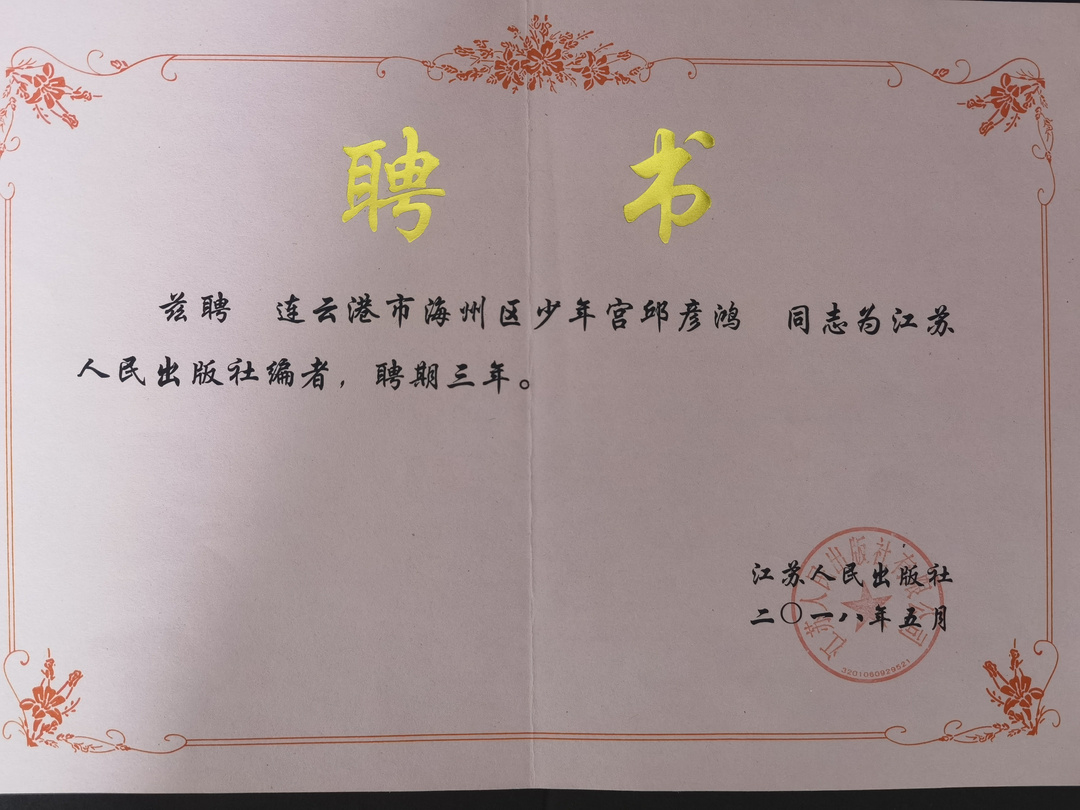 聘 书
兹聘 连云港市海州区少年宫邱彦鸿 同志为江苏
人民出版社编者，聘期三年。
江苏人民出版社
二〇一八年五月
江苏人民出版社有限公司
3201060929521